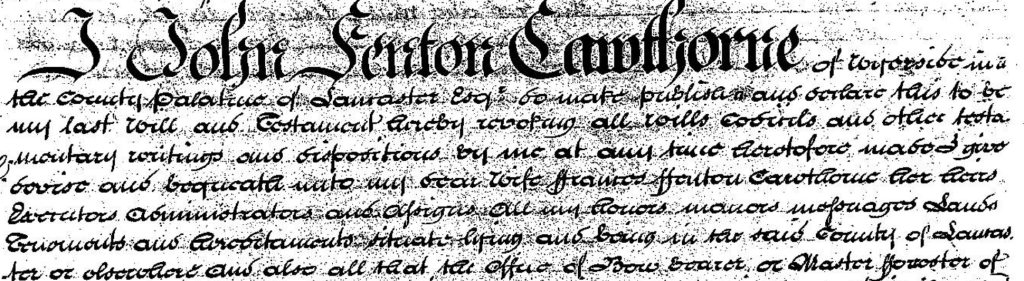 I John Fenton Cawthorne of Wyerside in
the County Palatine of Lancaster Esqr. do make publish and declare this to be
my last Will and Testament hereby revoking all Wills Codicils and other testa
mentary writings and dispositions by me at any time heretofore made I give
devise and bequeath unto my dear Wife ffrances ffenton Cawthorne her heirs
Executors Administrators and Assigns All my honors manors messuages Lands
Tenements and hereditaments situate lying and being in the said County of Lancas
ter or elsewhere and also all that the Office of Bow bearer or Master fforester of